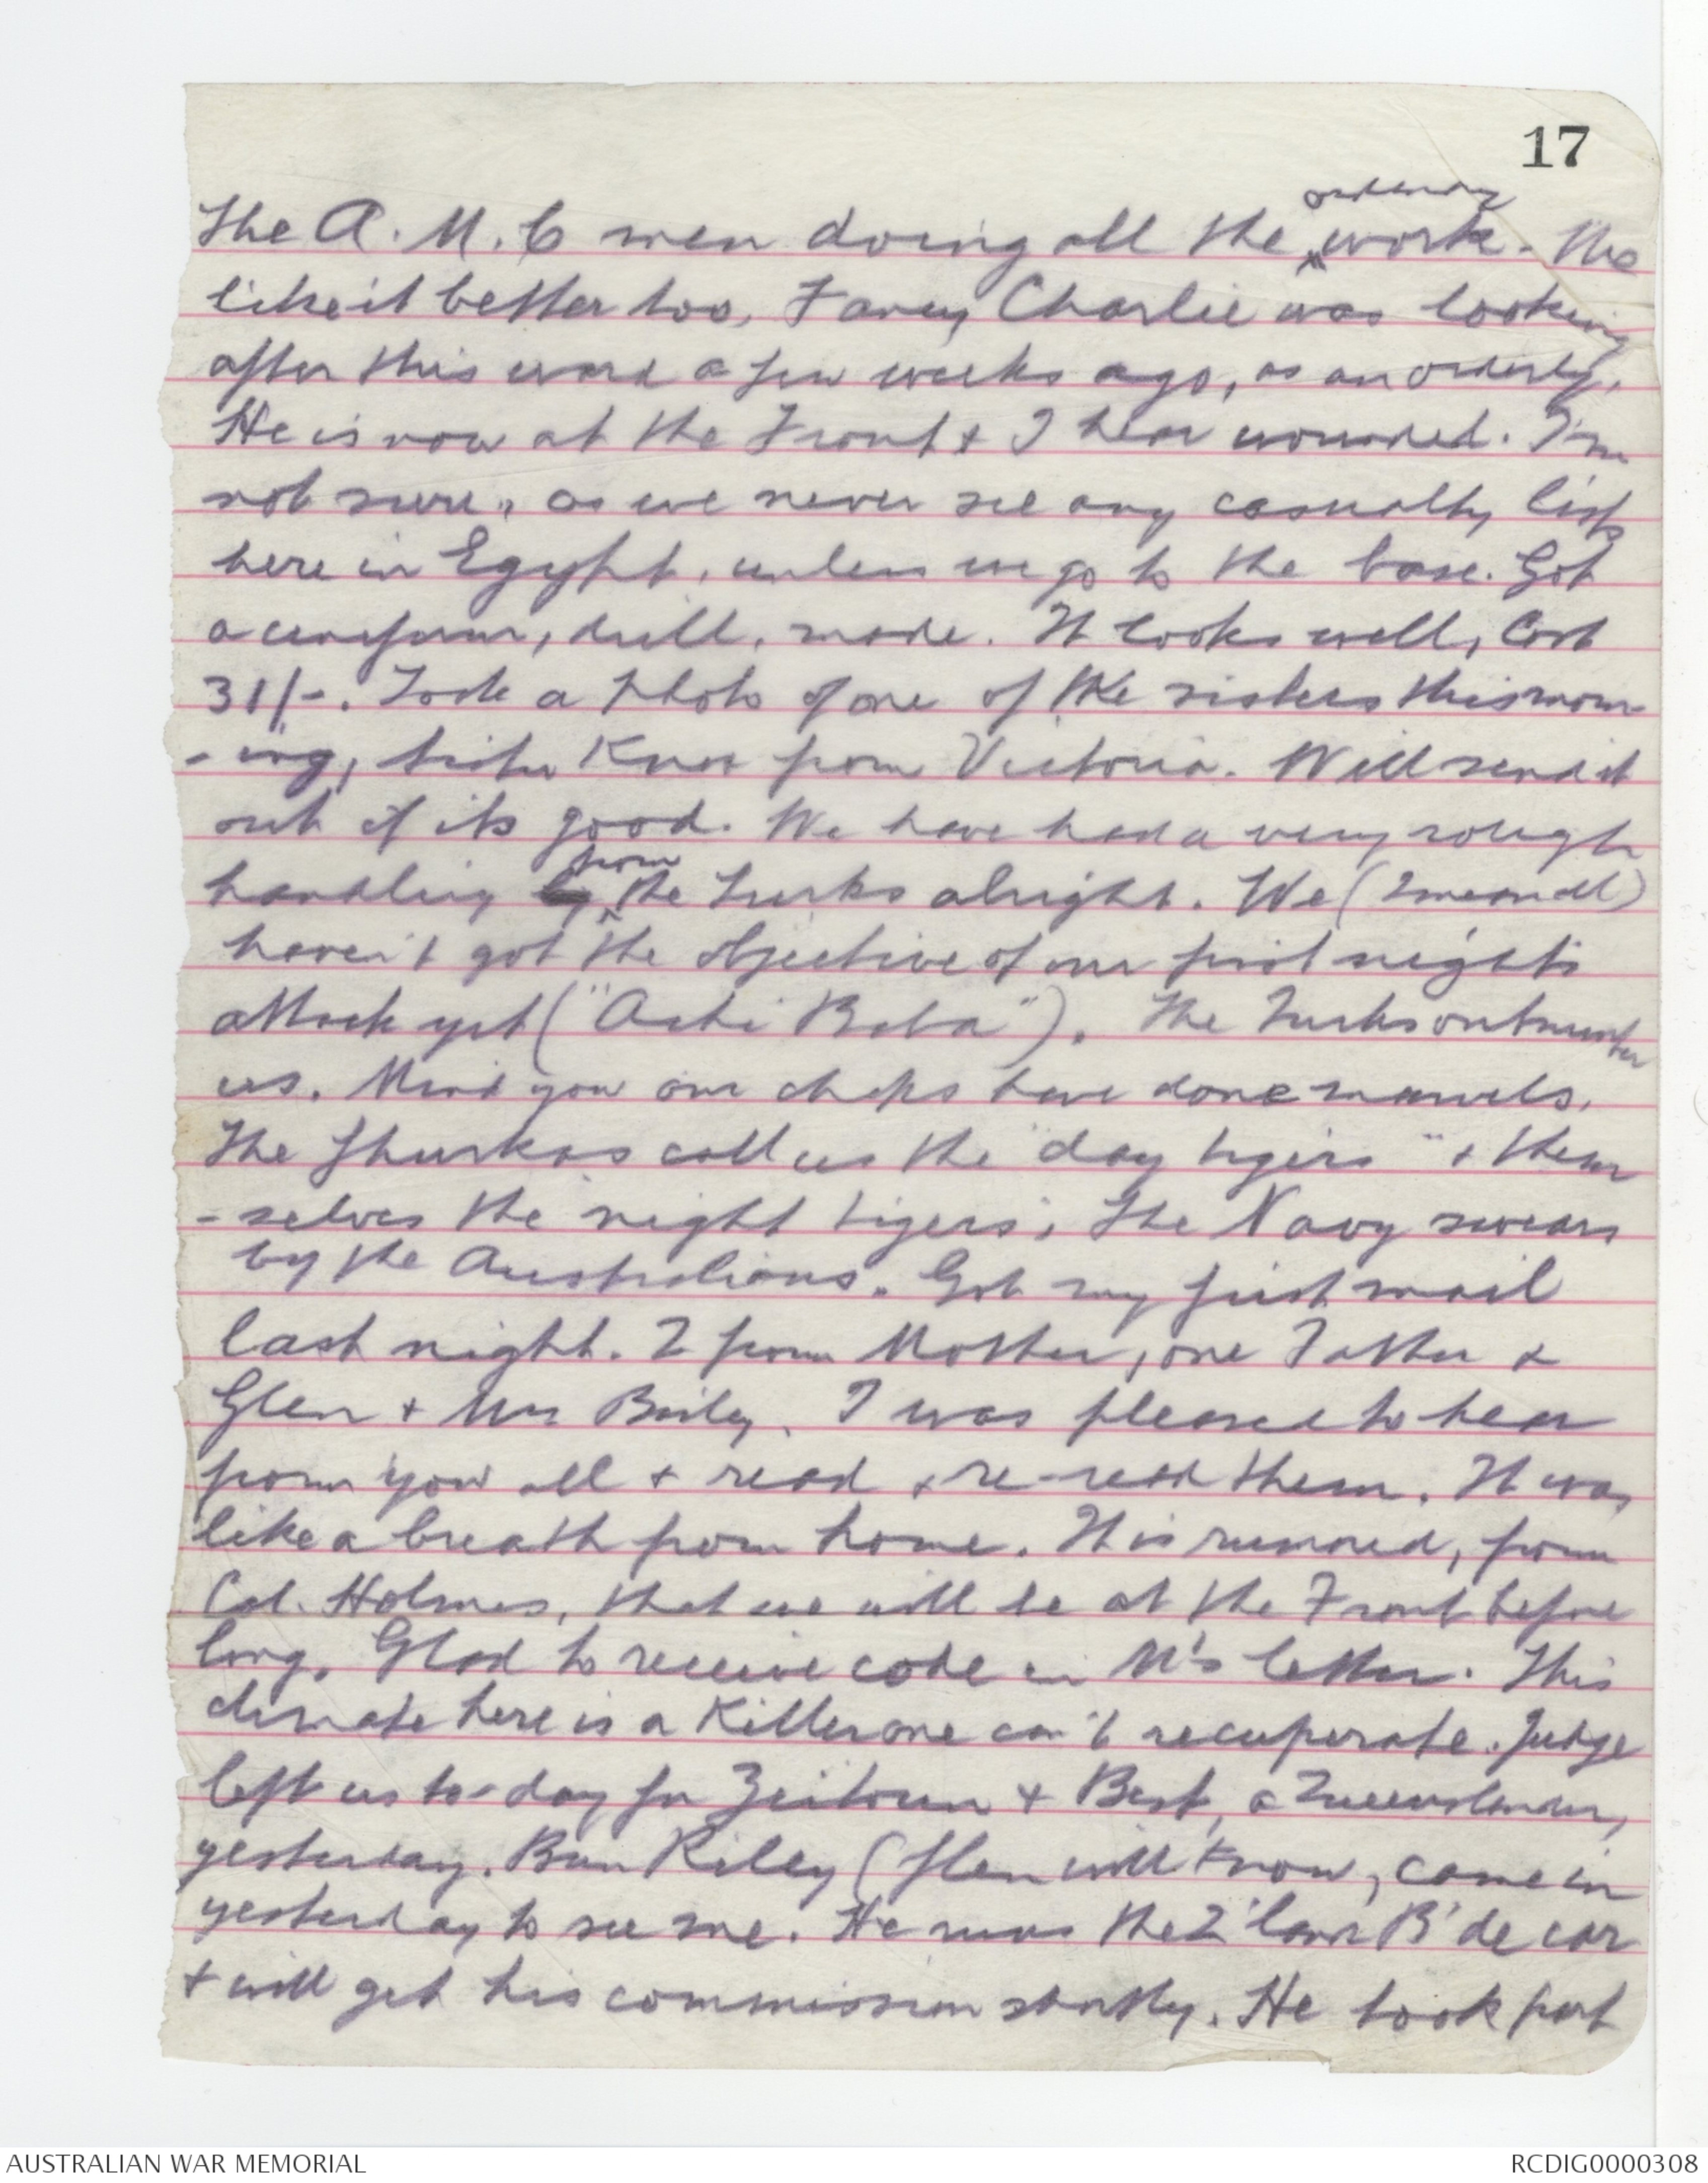 17
ordinary
The A.M.C men doing all the work. We
like it better too, Fancy, Charlie was looking
after this ward a few weeks ago, as an orderly.
He is now at the Front & I hear wounded. I'm
not sure, as we never see any casualty lists
here in Egypt, unless we go to the base. Got
a uniform, drill, made. It looks well, Cost
31/-. Took a photo of one of the sisters this morn-
-ing, Sister Knox from Victoria. Will send it
out if its good. We have had a very rough
handling by from the Turks alright. We (I mean all)
haven't got the objective of our first night's
attack yet ("Achi Baba"). The Turks outnumber
us. Mind you our chaps have done marvels.
The Ghurkas call us the "day tigers" & them
-selves the night tigers. The Navy swears
by the Australians. Got my first mail
last night. 2 from Mother, one Father &
Glen & Mrs Baily. I was pleased to hear
from you all & read & re-read them. It was
like a breath from home. It is rumored, from
Col. Holmes, that we will be at the Front before
long. Glad to receive code in M's letter. This
climate here is a Killer one can't recuperate. Judge
left us to-day for Zeitoun & Best, a Queenslander,
yesterday. Riley (Glen will know, came in
yesterday to see me. He runs the 2 B'de car
& will get his commission shortly. He took part
AUSTRALIAN WAR MEMORIAL
RCDIG0000308